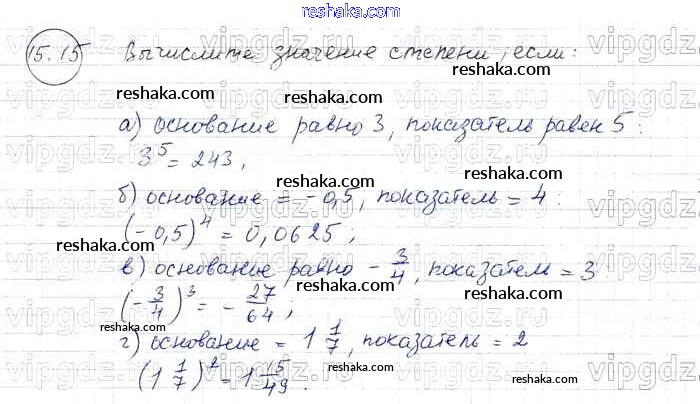 reshaka.com
15.15 Вычислите значение степени, если:
reshaka.com
а) основание равно 3, показатель равен 5:
3⁵ = 243,
reshaka.com
б) основание = -0,5, показатель = 4:
reshaka.com
(-0,5)⁴ = 0,0625;
reshaka.com
в) основание равно -3/4, показатель = 3
(-3/4)³ = -27/64;
reshaka.com
г) основание = 1 1/7, показатель = 2
(1 1/7)² = 1 15/49.
reshaka.com
vipgdz.ru